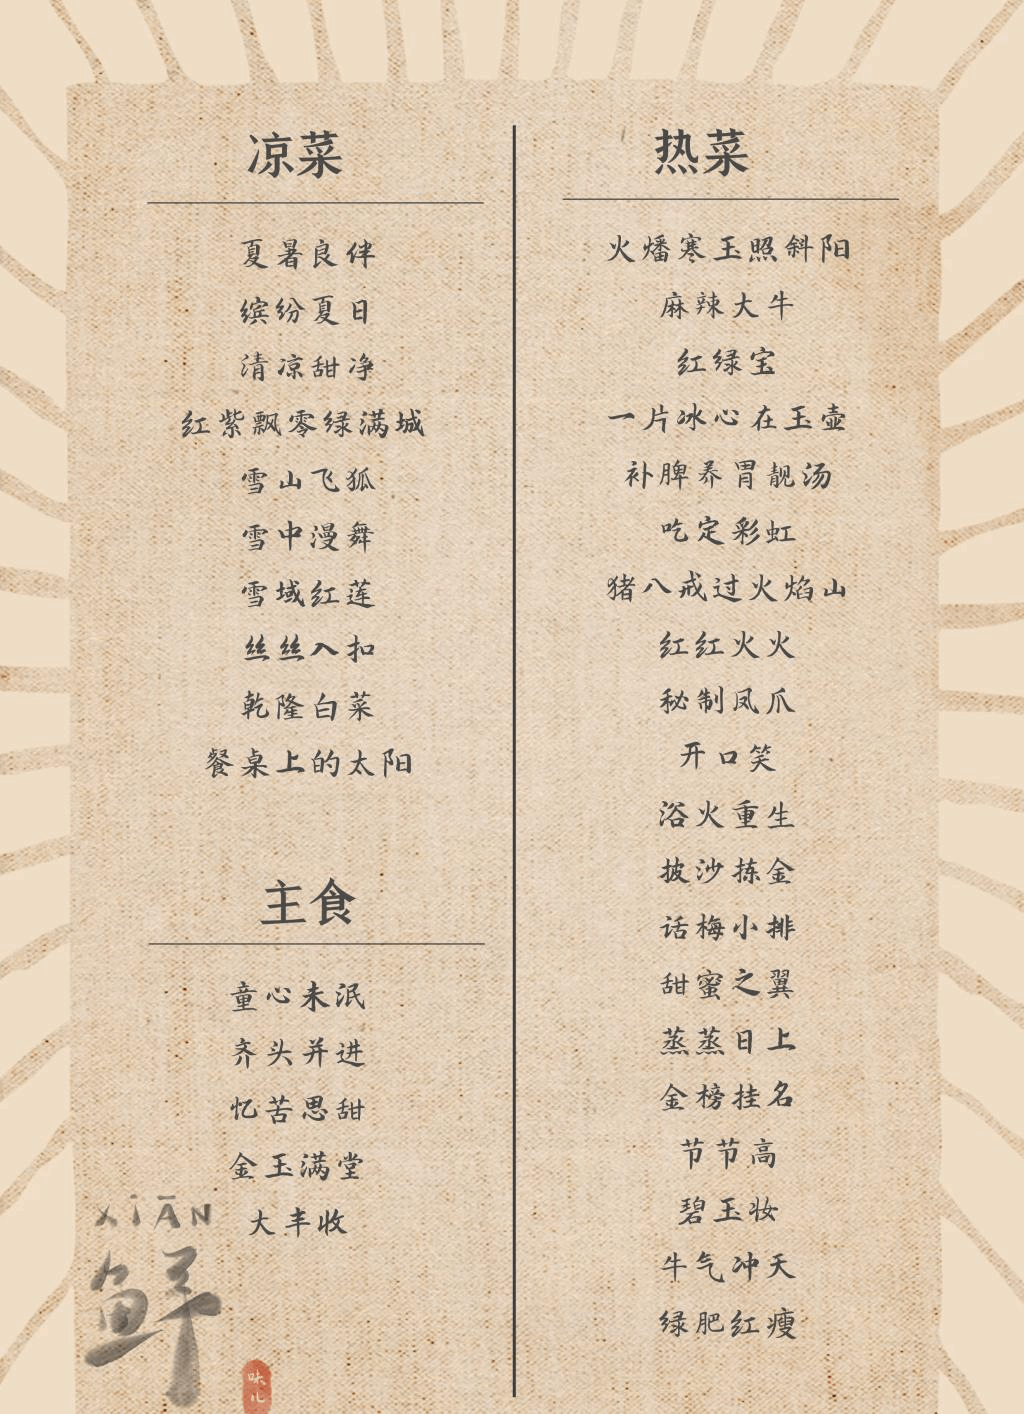 凉菜
夏暑良伴
缤纷夏日
清凉甜净
红紫飘零绿满城
雪山飞狐
雪中漫舞
雪域红莲
丝丝入扣
乾隆白菜
餐桌上的太阳
主食
童心未泯
齐头并进
忆苦思甜
金玉满堂
大丰收
XIĀN
鲜
味儿
热菜
火燔寒玉照斜阳
麻辣大牛
红绿宝
一片冰心在玉壶
补脾养胃靓汤
吃定彩虹
猪八戒过火焰山
红红火火
秘制凤爪
开口笑
浴火重生
披沙拣金
话梅小排
甜蜜之翼
蒸蒸日上
金榜挂名
节节高
碧玉妆
牛气冲天
绿肥红瘦